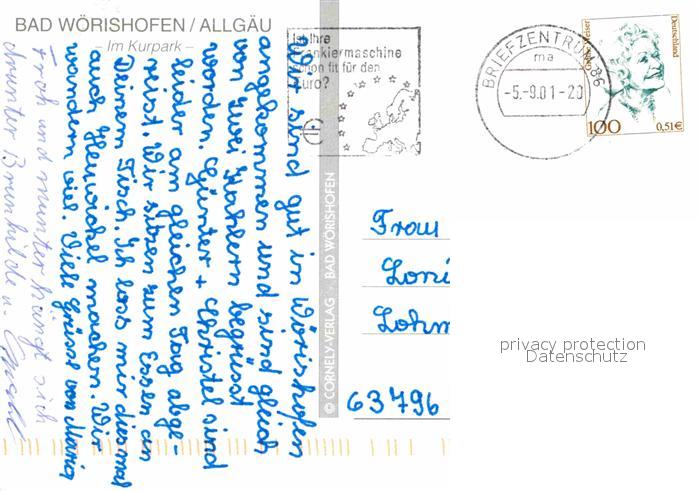 BAD WÖRISHOFEN / ALLGÄU
- Im Kurpark -
Wir sind gut in Wörishofen
angekommen und sind gleich
von zwei Kahlern begrüsst
worden. Günter + Christel sind
leider am gleichen Tag abge-
reist. Wir sitzen zum Essen an
Deinem Tisch. Ich lass mir diesmal
auch Heuwickel machen. Wir
wandern viel. Viele Grüsse von
Froh und munter hängt sich
drunter Brunhilde u.
© CORNELY-VERLAG · BAD WÖRISHOFEN
Ist Ihre
Frankiermaschine
schon fit für den
Euro?
BRIEFZENTRUM 86
ma
-5.-9.01-20
Deutschland
100
0,51€
Frau
Loni
Lohm
63796
privacy protection
Datenschutz